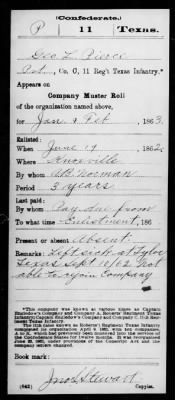 (Confederate.)
P 11 Texas.
Geo L. Pierce
Pvt., Co. C, 11 Reg't Texas Infantry.*
Appears on
Company Muster Roll
of the organization named above,
for Jan & Feb, 1863.
Enlisted:
When June 19, 1862.
Where Knoxville
By whom W.B. Norman
Period 3 years
Last paid:
By whom Pay due from
To what time Enlistment, 186
Present or absent Absent.
Remarks: Left sick at Tyler
Texas Sept 11/62 Not
able to rejoin Company
*This company was known at various times as Captain
Engledow's Company and Company A, Roberts' Regiment Texas
Infantry; Captain Engledow's Company and Company C, 11 Regiment
Texas Infantry.
Book mark:
Jno L Stewart
(642) Copyist.